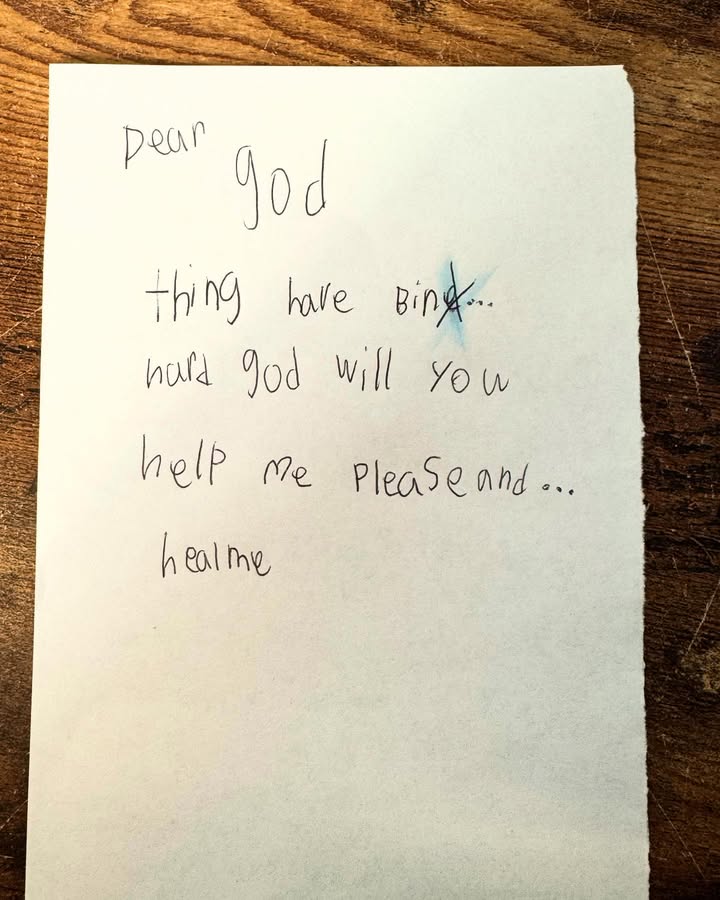 Dear
god
thing have Bin...
hard god will you
help me please and...
heal me